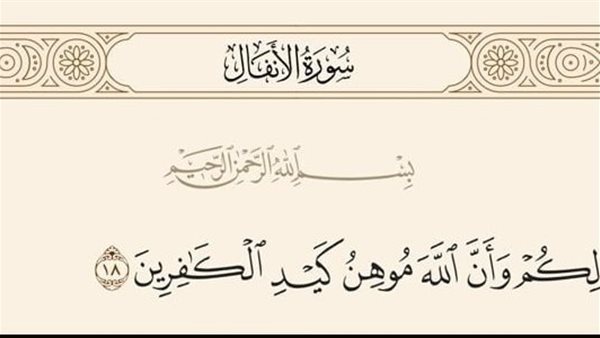 سُورَةُ الأَنفَالِ
بِسْمِ ٱللَّهِ ٱلرَّحْمَٰنِ ٱلرَّحِيمِ
لِكُمْ وَأَنَّ ٱللَّهَ مُوهِنُ كَيْدِ ٱلْكَٰفِرِينَ ١٨